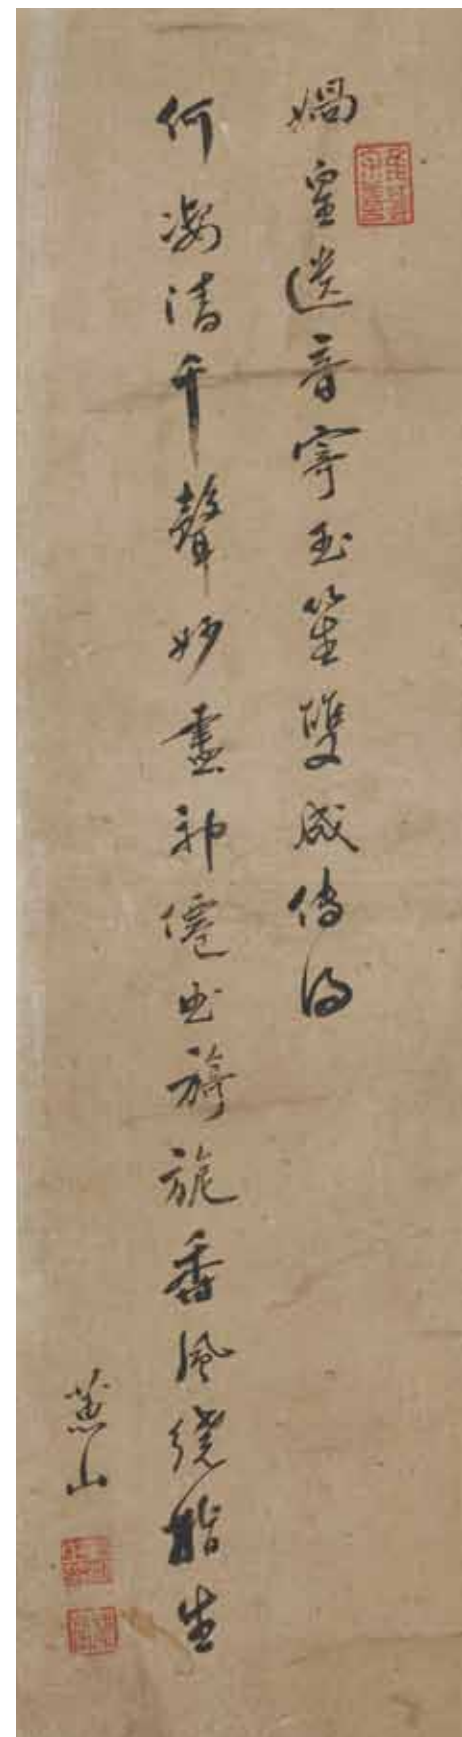 媧皇遺音寄玉笙雙成傳得
何凄清千聲妙盡神僊曲旖旎香風繞指生
山